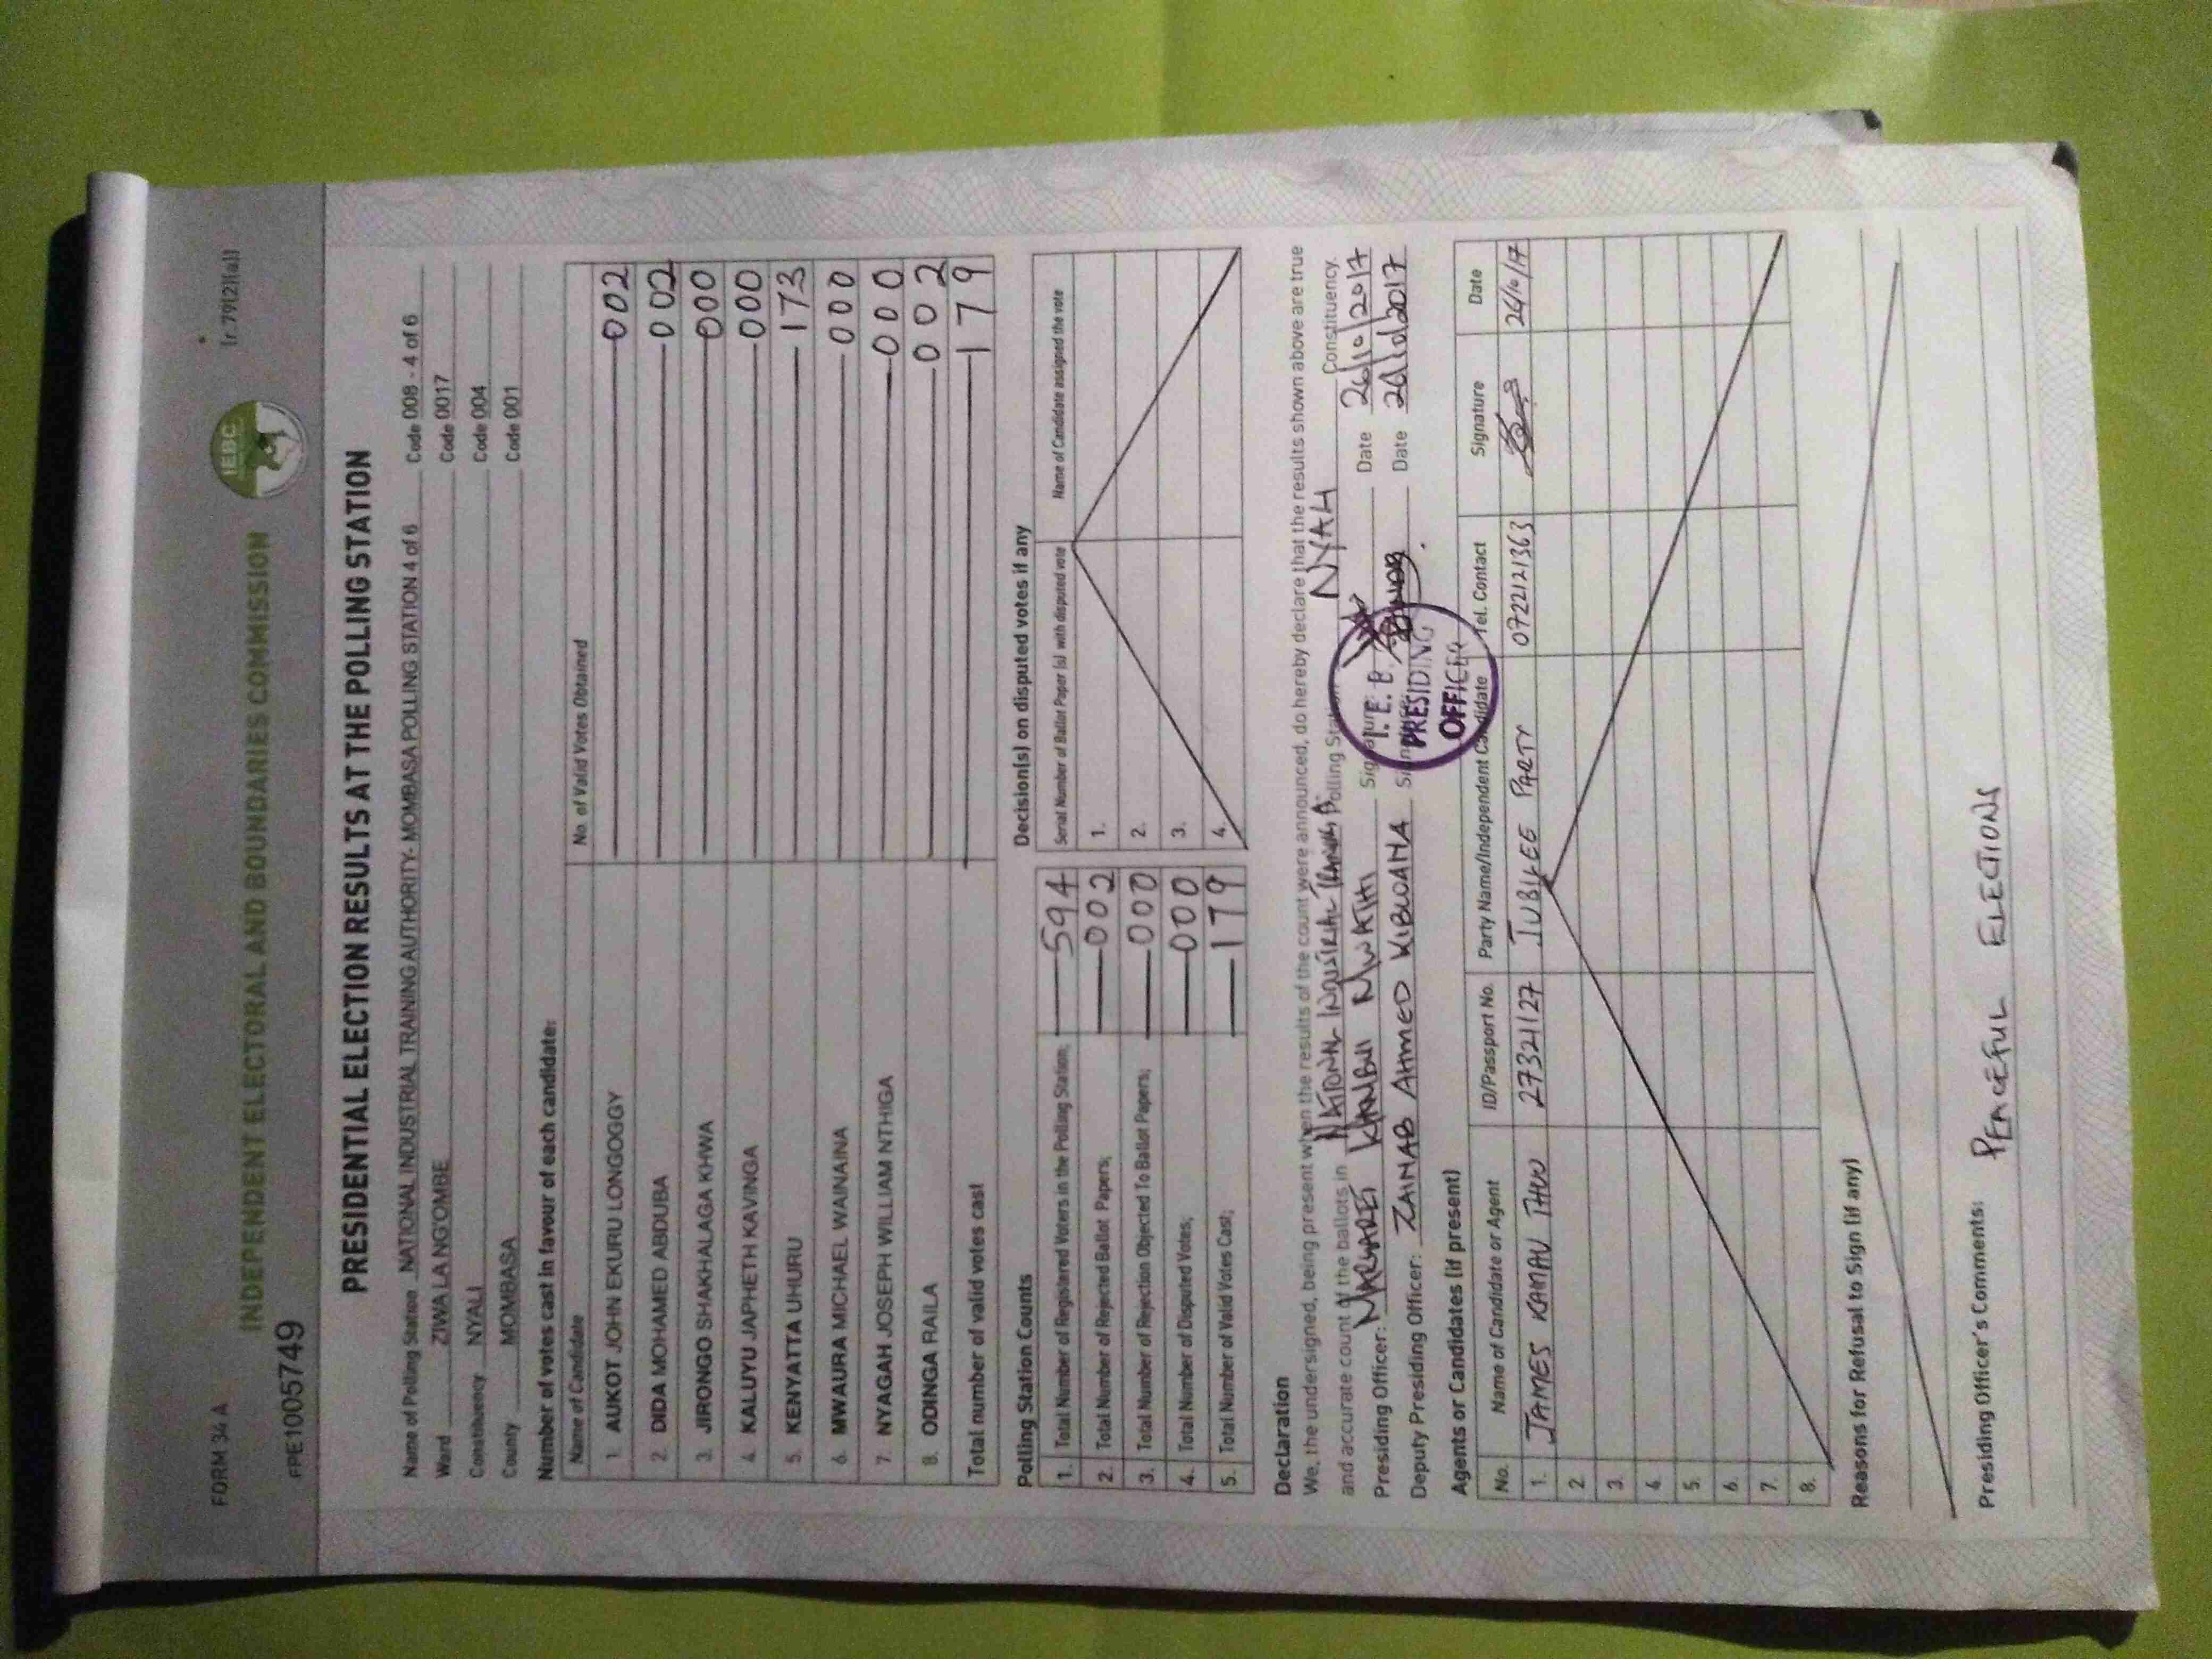 FORM 34 A
[r 79(2)(a)]
INDEPENDENT ELECTORAL AND BOUNDARIES COMMISSION
IEBC
FPE1005749
PRESIDENTIAL ELECTION RESULTS AT THE POLLING STATION
Name of Polling Station NATIONAL INDUSTRIAL TRAINING AUTHORITY- MOMBASA POLLING STATION 4 of 6 Code 008 - 4 of 6
Ward ZIWA LA NG'OMBE Code 0017
Constituency NYALI Code 004
County MOMBASA Code 001
Number of votes cast in favour of each candidate:
Name of Candidate No. of Valid Votes Obtained
1. AUKOT JOHN EKURU LONGOGGY 002
2. DIDA MOHAMED ABDUBA 002
3. JIRONGO SHAKHALAGA KHWA 000
4. KALUYU JAPHETH KAVINGA 000
5. KENYATTA UHURU 173
6. MWAURA MICHAEL WAINAINA 000
7. NYAGAH JOSEPH WILLIAM NTHIGA 000
8. ODINGA RAILA 002
Total number of valid votes cast 179
Polling Station Counts
1. Total Number of Registered Voters in the Polling Station; 594
2. Total Number of Rejected Ballot Papers; 002
3. Total Number of Rejection Objected To Ballot Papers; 000
4. Total Number of Disputed Votes; 000
5. Total Number of Valid Votes Cast; 179
Decision(s) on disputed votes if any
Serial Number of Ballot Paper (s) with disputed vote Name of Candidate assigned the vote
1.
2.
3.
4.
Declaration
We, the undersigned, being present when the results of the count were announced, do hereby declare that the results shown above are true
and accurate count of the ballots in NATIONAL INDUSTRIAL Polling Station Constituency.
Presiding Officer: MARGARET Signature: Date 26/10/2017
Deputy Presiding Officer: ZAINAB AHMED Date 26/10/2017
PRESIDING
OFFICER
Agents or Candidates (if present)
No. Name of Candidate or Agent ID/Passport No. Party Name/Independent Candidate Tel. Contact Signature Date
1. JAMES KAMAU 27321127 JUBILEE PARTY 0722121363 26/10/17
2.
3.
4.
5.
6.
7.
8.
Reasons for Refusal to Sign (if any)
Presiding Officer's Comments: PEACEFUL ELECTIONS